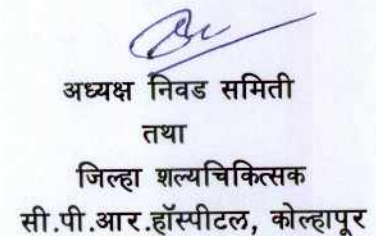 अध्यक्ष निवड समिती
तथा
जिल्हा शल्यचिकित्सक
सी.पी.आर.हॉस्पीटल, कोल्हापूर